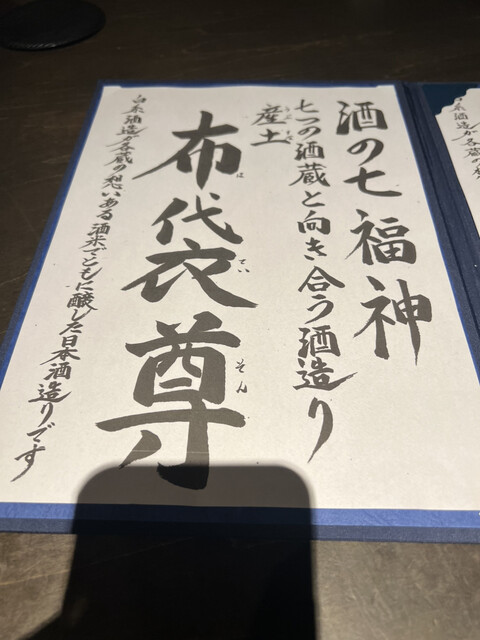 白糸酒造が各蔵の
酒の七福神
七つの酒蔵と向き合う酒造り
産土
布代衣尊
は
てい
そん
白糸酒造が各蔵の想いある酒米でともに醸した日本酒造りです